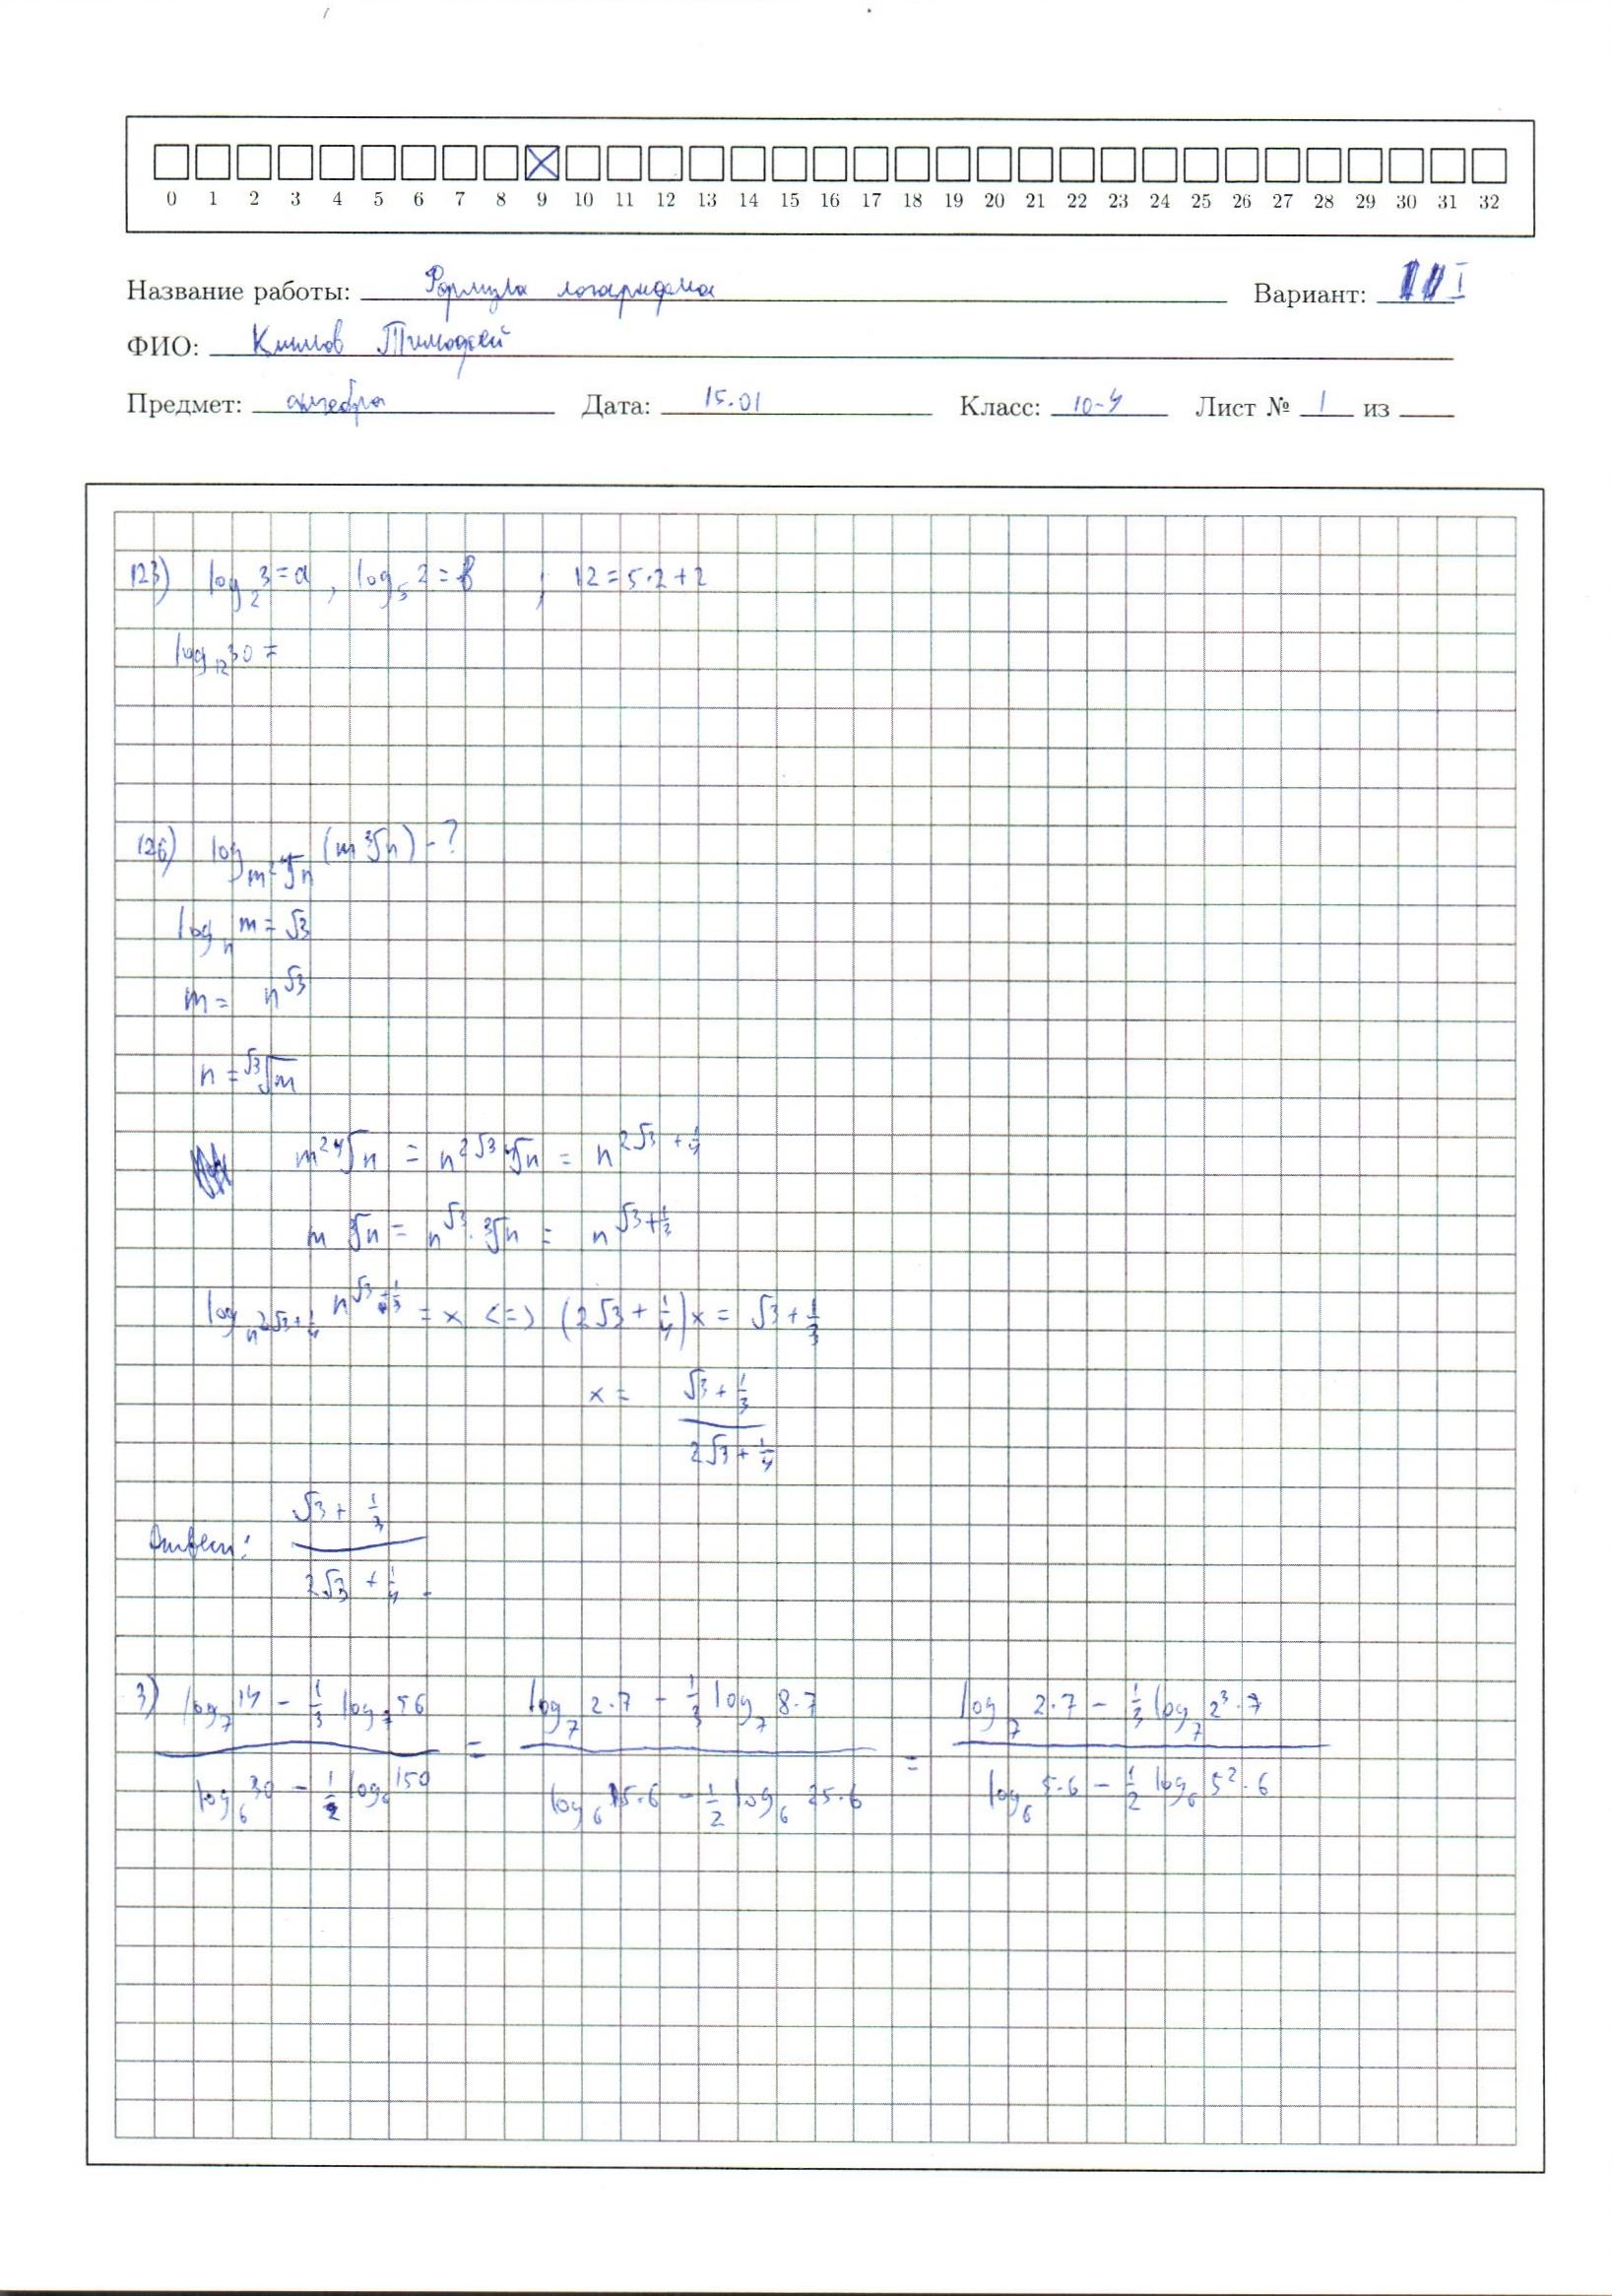 0 1 2 3 4 5 6 7 8 9 10 11 12 13 14 15 16 17 18 19 20 21 22 23 24 25 26 27 28 29 30 31 32
Название работы: Формула логарифма Вариант: I
ФИО: Тимофей
Предмет: алгебра Дата: 15.01 Класс: 10-4 Лист № 1 из
123) log₂3 = a, log₅2 = b ; 12 = 5·2+2
log₁₂30 =
126) log_{m²∜n} (m∛n) - ?
log_n m = √3
m = n^{√3}
n = ^{√3}√m
m²∜n = n^{2√3}∜n = n^{2√3 + 1/4}
m∛n = n^{√3}·∛n = n^{√3+1/3}
log_{n^{2√3+1/4}} n^{√3+1/3} = x <=> (2√3 + 1/4)x = √3 + 1/3
x = (√3 + 1/3)/(2√3 + 1/4)
Ответ: (√3 + 1/3)/(2√3 + 1/4).
3) (log₇14 - 1/3 log₇56)/(log₆30 - 1/2 log₆150) = (log₇2·7 - 1/3 log₇8·7)/(log₆5·6 - 1/2 log₆25·6) = (log₇2·7 - 1/3 log₇2³·7)/(log₆5·6 - 1/2 log₆5²·6)